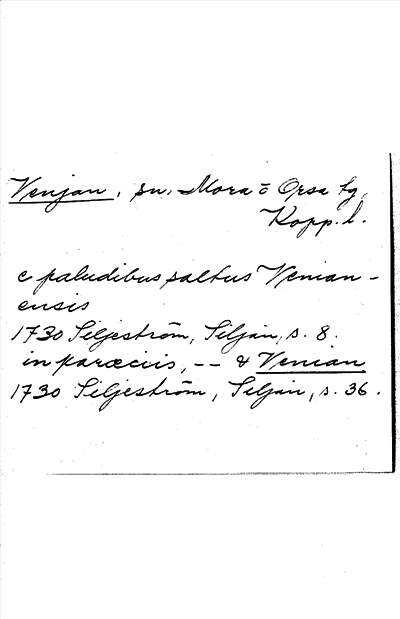 Venjan, sn, Mora o Orsa tg,
Kopp. l.
e paludibus saltus Venian-
ensis
1730 Siljeström, Siljan, s. 8.
in paræciis, -- & Venian
1730 Siljeström, Siljan, s. 36.